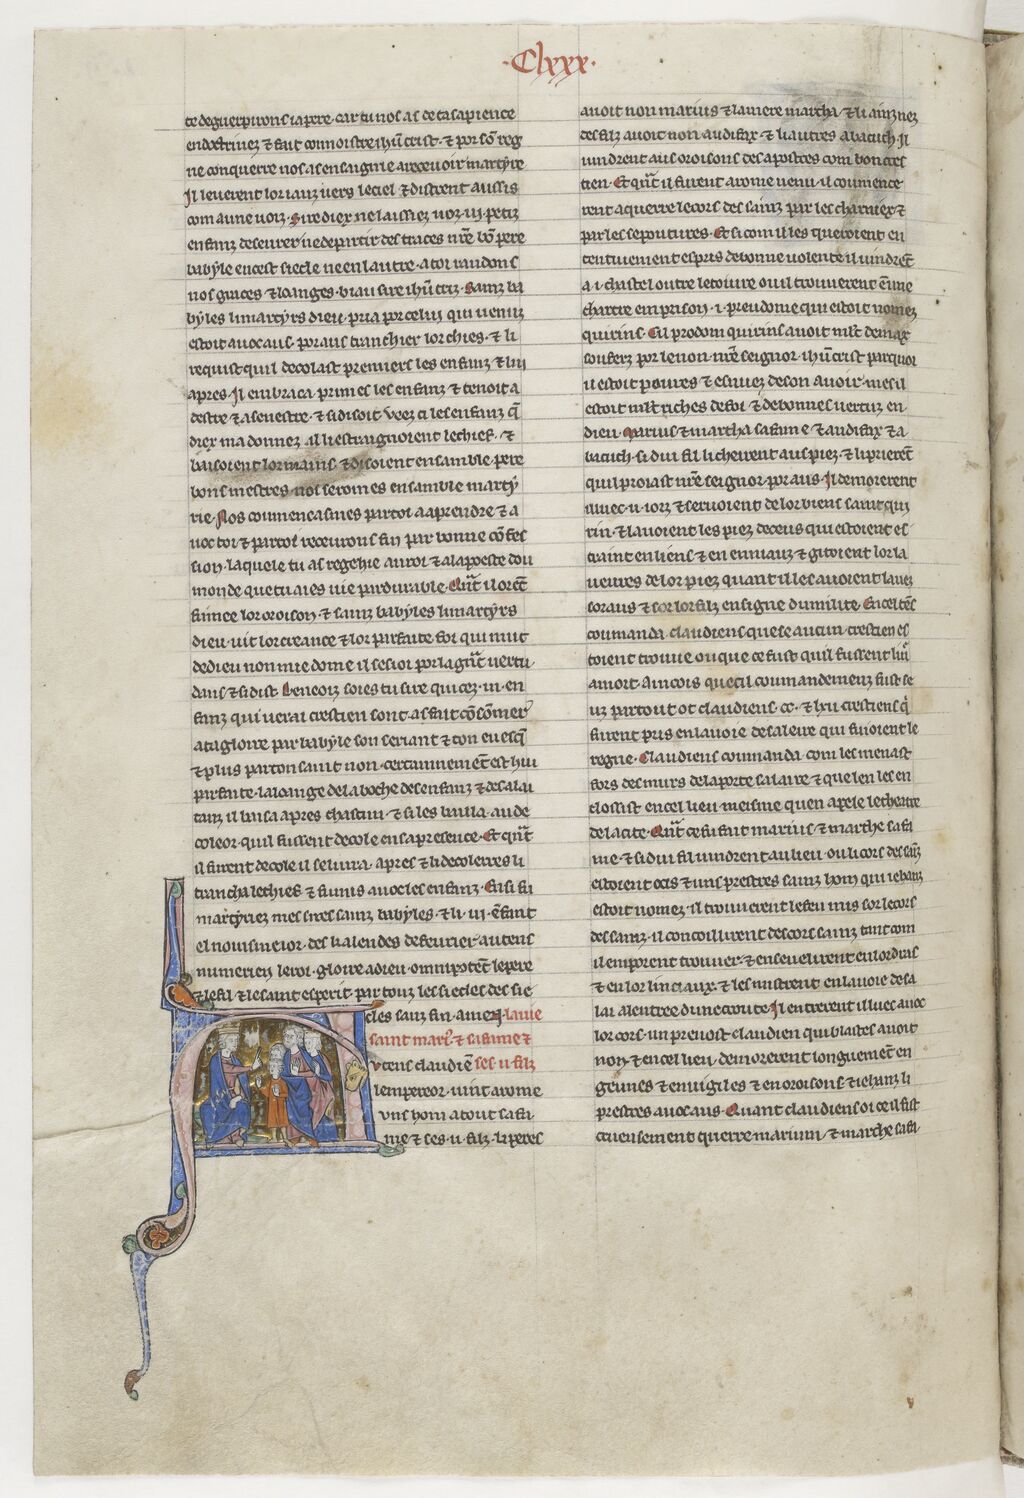 ·Clxxx·
te deguerpirons ia pere· car tu nos as de ta sapience
endoctrinez ⁊ fait connoistre ihũ crist· ⁊ por sõ reg
ne conquerre nos as ensaignie a recevoir martyre
Il leverent lor iauz vers le ciel ⁊ distrent aussis
com a une voiz· Sire diex ne laissiez voz ·iii· petiz
enfanz desevrer ne departir des traces nr̃e bõ pere
babyle en cest siecle ne en l autre· a toi randons
nos graces ⁊ loanges· biau sire ihũ criz· Sainz ba
byles li martyrs dieu· pria por celui qui venuz
estoit avoc aus· por aus tranchier lor chies· ⁊ li
requist quil decolast premiers les enfanz ⁊ lui
apres· Il embraca primes les enfanz ⁊ tenoit a
destre ⁊ a senestre· ⁊ si disoit veez ci les enfanz q̃
diex ma donnez· il li estraignoient le chief· ⁊
baisoient lor mains· ⁊ disoient ensamble· pere
bons mestres· nos seromes ensamble marty
rie· Nos coumencasmes par toi a aprendre ⁊ a
voc toi ⁊ par toi recevrons fin par bonne cõfes
sion· la quele tu as regehie au roi ⁊ a la poeste dou
monde que tu aies vie pardurable· Quãt il orẽt
finnee lor oroison· ⁊ sainz babyles li martyrs
dieu· vit lor creance ⁊ lor parfaite foi qui mut
de dieu non mie dome il sesioi por la grãt vertu·
dans ⁊ si dist Beneoiz soies tu sire qui cez ·iii· en
fanz qui verai crestien sont· as fait cõsõmer
a ta gloire par babyle son seriant ⁊ ton evesq̃
⁊ plus par ton saint non· certainnemẽt est hui
parfaite· la loange de la boche des enfanz ⁊ des alai
tanz il baisa apres chascun· ⁊ si les bailla au de
coleor· quil fussent decole en sa presence· Et qũt
il furent decole il se livra· apres ⁊ li decolerres li
trancha le chief ⁊ fu mis avoc les enfanz· Ensi fu
martyriez mes sires sainz babyles· ⁊ li ·iii· ẽfant
el novisme ior· des kalendes de fevrier· au tens
numerien le roi· gloire a dieu· omnipotẽt le pere
⁊ le fil ⁊ le saint esperit par touz les siecles des sie
cles sanz fin· amen· la vie
saint mar᷑· ⁊ sa fame ⁊
v tens claudiẽ ses ·ii· filz
lempereor· vint a rome
uns hom a tout sa fa
me ⁊ ses ·ii· filz· li peres
avoit non marius ⁊ la mere martha· ⁊ li ainznez
des filz avoit non audifax· ⁊ li autres abacuch· Il
vindrent aus oroisons des apostres com bon cres
tien· Et qũt il furent a rome venu· il coumence
rent a querre le cors des sainz par les charniex ⁊
par les sepoutures· Et si com il les queroient en
tentivement espris de bonne volente il vindrẽt
a ·i· chastel outre le toivre ou il trouverent ẽ une
chartre em prison ·i· preudome qui estoit nomez
quirins· Cil prodom quirins avoit ml't de max
souferz por le non nr̃e seignor· ihũ crist par quoi
il estoit povres ⁊ esvuiez de son avoir· mes il
estoit ml't riches de foi· ⁊ de bonnes vertuz en
dieu· Marius ⁊ martha sa fame ⁊ audifax ⁊ a
bacuch· si dui fil li cheirent aus piez· ⁊ li prierẽt
quil proiast nr̃e seignor por aus· Il demorerent
iluec ·v· iorz ⁊ servoient de lor biens saint qui
rin· ⁊ lavoient les piez de ceus qui estoient es
traint en liens ⁊ en enniauz ⁊ gitoient lor la
veures de lor piez quant il les avoient lavez
sor aus ⁊ sor lor filz en signe d umilite En cel tẽs
coumanda claudiens que se aucun crestien es
toient trouve ou que ce fust quil fussent livr̃
a mort· Aincois que cil coumandemenz fust se
uz par tout ot claudiens ·cc· ⁊ lxii crestiens q̃
furent pris en la voie de salerre qui fuioient le
regne· Claudiens coumanda· com les menast
fors des murs de la porte salaire ⁊ que len les en
clossist en cel lieu meisme quen apele le theatre
de la cite· Qũt ce sut saint marius ⁊ marthe sa fa
me· ⁊ si dui fil vindrent au lieu· ou li cors des saĩz
estoient ocis ⁊ uns prestres sainz hom qui iehanz
estoit nomez· il trouverent le feu mis sor le cors
des sainz· il concoillirent des cors sainz tant com
il em porent trouver· ⁊ ensevelirent en lor dras
⁊ en lor linciaux· ⁊ les mistrent en la voie de sa
lai a l entree d une croute· Il entrerent illuec avoc
lor cors· un prevost claudien qui blastes avoit
non· ⁊ en cel lieu· demorerent longuemẽt en
geunes ⁊ en vigiles ⁊ en oroisons· ⁊ iehanz li
prestres avoc aus· Quant claudiens oi ce il fist
cruensement querre marium· ⁊ marche sa fa